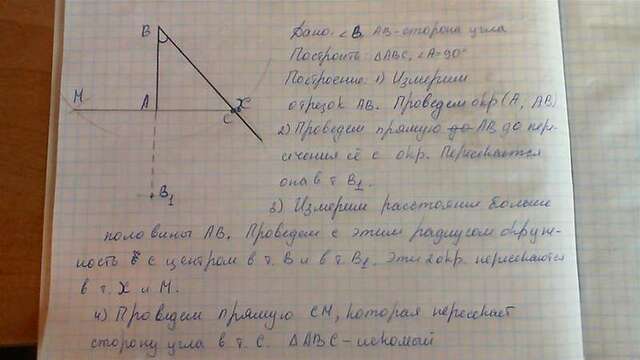 B
M
A
X
C
B₁
Дано: ∠B, AB-сторона угла
Построить: △ABC, ∠A=90°
Построение: 1) Измерим
отрезок AB. Проведем окр(A, AB)
2) Проведем прямую до AB до пере-
сечения её с окр. Пересекается
она в т. B₁.
3) Измерим расстояния больше
половины AB. Проведем с этим радиусом окруж-
ность с центром в т. B и в т. B₁. Эти 2 окр. пересекаются
в т. X и M.
4) Проведем прямую CM, которая пересекает
сторону угла в т. C. △ABC-искомый